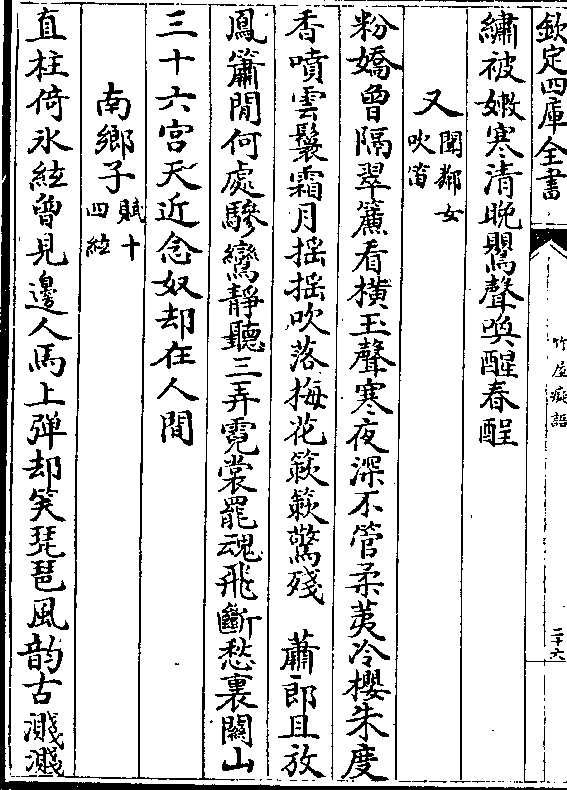 欽定四庫全書
竹屋癡語
二十六
繡被嫩寒清晚鶯聲喚醒春酲
又聞鄰女吹笛
粉嬌曾隔翠簾看横玉聲寒夜深不管柔荑冷櫻朱度
香噴雲鬟霜月摇摇吹落梅花簌簌驚殘　蕭郎且放
鳳簫閒何處驂鸞靜聽三弄霓裳罷魂飛斷愁裏關山
三十六宫天近念奴却在人間
南鄉子賦十四絃
直柱倚氷絃曽見邊人馬上弹却笑琵琶風韵古濺濺